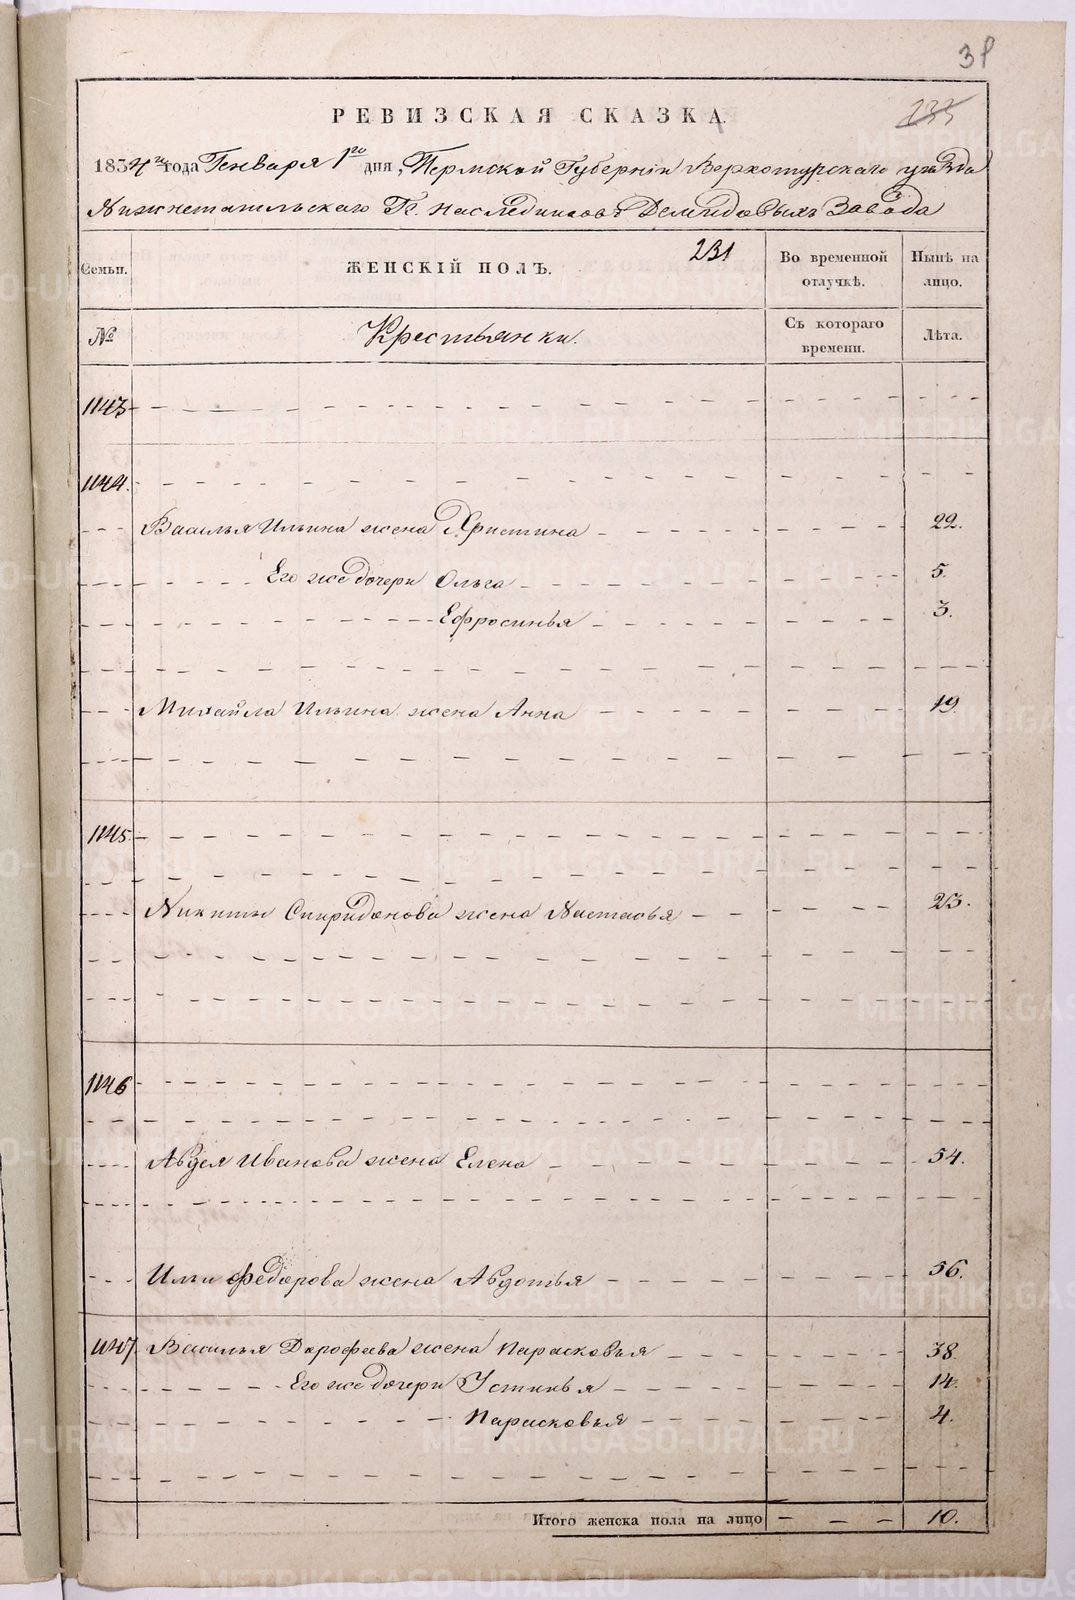 38
235
РЕВИЗСКАЯ СКАЗКА.
1834 го года Генваря 1го дня, Пермской Губерніи Верхотурскаго уѣзда
Нижнетагильскаго Г. Наследниковъ Демидовыхъ Завода
Семьи. ЖЕНСКІЙ ПОЛЪ. 231 Во временной отлучкѣ. Нынѣ на лицо.
№ Крестьянки. Съ котораго времени. Лѣта.
1143
1144.
Василья Ильина жена Христина 22.
Его же дочери Ольга 5.
Ефросинья 3.
Михайла Ильина жена Анна 19.
1145.
Никиты Спиридонова жена Настасья 23.
1146
Авдея Иванова жена Елена 54.
Ильи Федорова жена Авдотья 56.
1147 Василья Дорофеева жена Парасковья 38.
Его же дочери Устинья 14.
Парасковья 4.
Итого женска пола на лицо 10.
METRIKI.GASO-URAL.RU